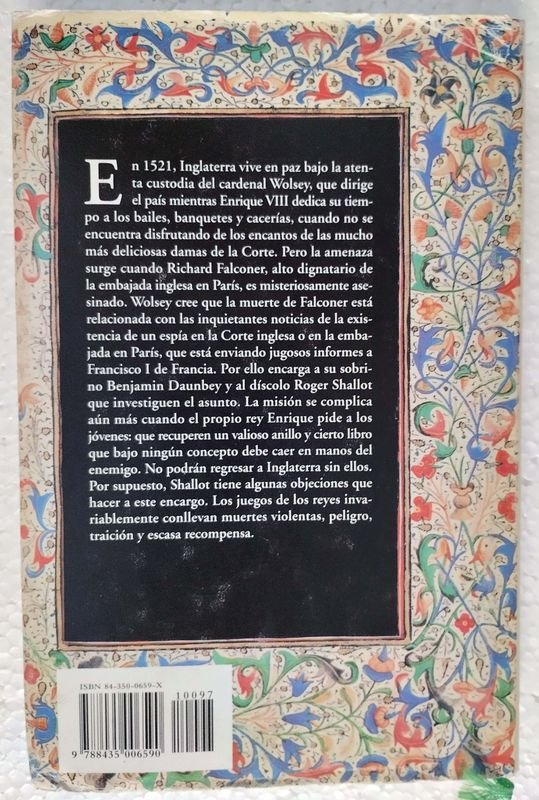 En 1521, Inglaterra vive en paz bajo la aten-
ta custodia del cardenal Wolsey, que dirige
el país mientras Enrique VIII dedica su tiem-
po a los bailes, banquetes y cacerías, cuando no se
encuentra disfrutando de los encantos de las mucho
más deliciosas damas de la Corte. Pero la amenaza
surge cuando Richard Falconer, alto dignatario de
la embajada inglesa en París, es misteriosamente ase-
sinado. Wolsey cree que la muerte de Falconer está
relacionada con las inquietantes noticias de la exis-
tencia de un espía en la Corte inglesa o en la em-
bajada en París, que está enviando jugosos informes a
Francisco I de Francia. Por ello encarga a su sobri-
no Benjamin Daunbey y al díscolo Roger Shallot
que investiguen el asunto. La misión se complica
aún más cuando el propio rey Enrique pide a los
jóvenes: que recuperen un valioso anillo y cierto libro
que bajo ningún concepto debe caer en manos del
enemigo. No podrán regresar a Inglaterra sin ellos.
Por supuesto, Shallot tiene algunas objeciones que
hacer a este encargo. Los juegos de los reyes inva-
riablemente conllevan muertes violentas, peligro,
traición y escasa recompensa.
ISBN 84-350-0659-X
10097
9 788435 006590